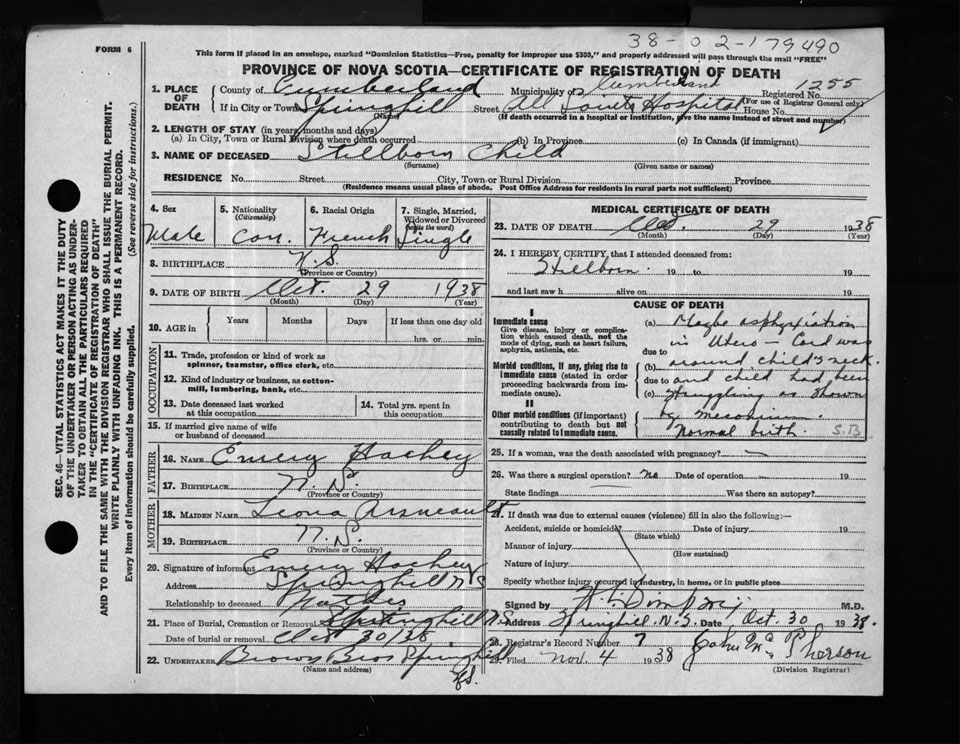 38-02-179490
FORM 6
This form if placed in an envelope, marked "Dominion Statistics—Free, penalty for improper use $300," and properly addressed will pass through the mail "FREE"
PROVINCE OF NOVA SCOTIA—CERTIFICATE OF REGISTRATION OF DEATH
1. PLACE OF DEATH
County of Cumberland Municipality of Cumberland Registered No. 1255
(For use of Registrar General only)
If in City or Town Springhill Street All Saints Hospital House No.
(Name) (If death occurred in a hospital or institution, give the name instead of street and number)
2. LENGTH OF STAY (in years, months and days)
(a) In City, Town or Rural Division where death occurred (b) In Province (c) In Canada (if immigrant)
3. NAME OF DECEASED Stillborn Child
(Surname) (Given name or names)
RESIDENCE No. Street City, Town or Rural Division Province
(Residence means usual place of abode. Post Office Address for residents in rural parts not sufficient)
4. Sex 5. Nationality (Citizenship) 6. Racial Origin 7. Single, Married, Widowed or Divorced (write the word)
Male Can. French Single
8. BIRTHPLACE N.S.
(Province or Country)
9. DATE OF BIRTH Oct. 29 1938
(Month) (Day) (Year)
10. AGE in Years Months Days If less than one day old
hrs. or min.
OCCUPATION
11. Trade, profession or kind of work as spinner, teamster, office clerk, etc.
12. Kind of industry or business, as cotton-mill, lumbering, bank, etc.
13. Date deceased last worked at this occupation
14. Total yrs. spent in this occupation
15. If married give name of wife or husband of deceased
FATHER
16. NAME Emery Hachey
17. BIRTHPLACE N.S.
(Province or Country)
MOTHER
18. MAIDEN NAME Leona Arsneault
19. BIRTHPLACE N.S.
(Province or Country)
20. Signature of informant Emery Hachey
Address Springhill N S
Relationship to deceased Father
21. Place of Burial, Cremation or Removal Springhill N.S.
Date of burial or removal Oct 30/38
22. UNDERTAKER Brown Bros Springhill
(Name and address)
N.S.
MEDICAL CERTIFICATE OF DEATH
23. DATE OF DEATH Oct. 29 1938
(Month) (Day) (Year)
24. I HEREBY CERTIFY, that I attended deceased from:
Stillborn 19 to 19
and last saw h alive on 19
CAUSE OF DEATH
I
Immediate cause
Give disease, injury or complication which caused death, not the mode of dying, such as heart failure, asphyxia, asthenia, etc.
Morbid conditions, if any, giving rise to immediate cause (stated in order proceeding backwards from immediate cause).
II
Other morbid conditions (if important) contributing to death but not causally related to immediate cause.
(a) Maybe asphyxiation
in Utero — Cord was
due to around child's neck.
due to and child had been
(c) Strangling as shown
by meconium.
Normal birth. S.B
25. If a woman, was the death associated with pregnancy?
26. Was there a surgical operation? No Date of operation 19
State findings Was there an autopsy?
27. If death was due to external causes (violence) fill in also the following:—
Accident, suicide or homicide? Date of injury 19
(State which)
Manner of injury
(How sustained)
Nature of injury
Specify whether injury occurred in industry, in home, or in public place
Signed by M.D.
Address Springhill, N.S. Date Oct. 30 1938.
28. Registrar's Record Number 7
29. Filed Nov. 4 1938 John Mc Pherson
(Division Registrar)
SEC. 46—VITAL STATISTICS ACT MAKES IT THE DUTY
OF THE UNDERTAKER OR PERSON ACTING AS UNDER-
TAKER TO OBTAIN ALL THE PARTICULARS REQUIRED
IN THE "CERTIFICATE OF REGISTRATION OF DEATH"
AND TO FILE THE SAME WITH THE DIVISION REGISTRAR WHO SHALL ISSUE THE BURIAL PERMIT.
WRITE PLAINLY WITH UNFADING INK. THIS IS A PERMANENT RECORD.
Every item of information should be carefully supplied. (See reverse side for instructions.)